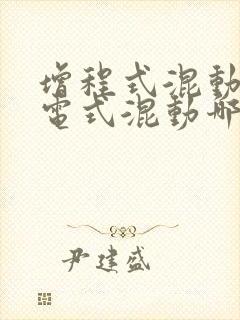 增程式混動
電式混動哪
尹建盛